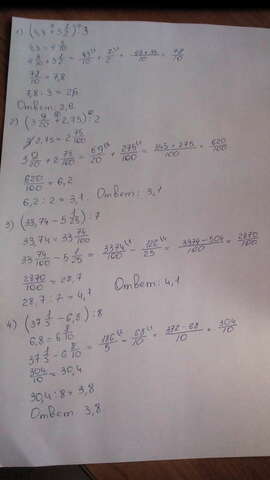 1) (4,3 + 3 1/2) : 3
4,3 = 4 3/10
4 3/10 + 3 1/2 = 43/10 + 7/2 = (43+35)/10 = 78/10
78/10 = 7,8
7,8 : 3 = 2,6
Ответ: 2,6
2) (3 9/20 + 2,75) : 2
2,75 = 2 75/100
3 9/20 + 2 75/100 = 69/20 + 275/100 = (345+275)/100 = 620/100
620/100 = 6,2
6,2 : 2 = 3,1. Ответ: 3,1
3) (33,74 - 5 1/25) : 7
33,74 = 33 74/100
33 74/100 - 5 1/25 = 3374/100 - 126/25 = (3374-504)/100 = 2870/100
2870/100 = 28,7
28,7 : 7 = 4,1 Ответ: 4,1
4) (37 1/5 - 6,8) : 8
6,8 = 6 8/10
37 1/5 - 6 8/10 = 186/5 - 68/10 = (372-68)/10 = 304/10
304/10 = 30,4
30,4 : 8 = 3,8
Ответ: 3,8